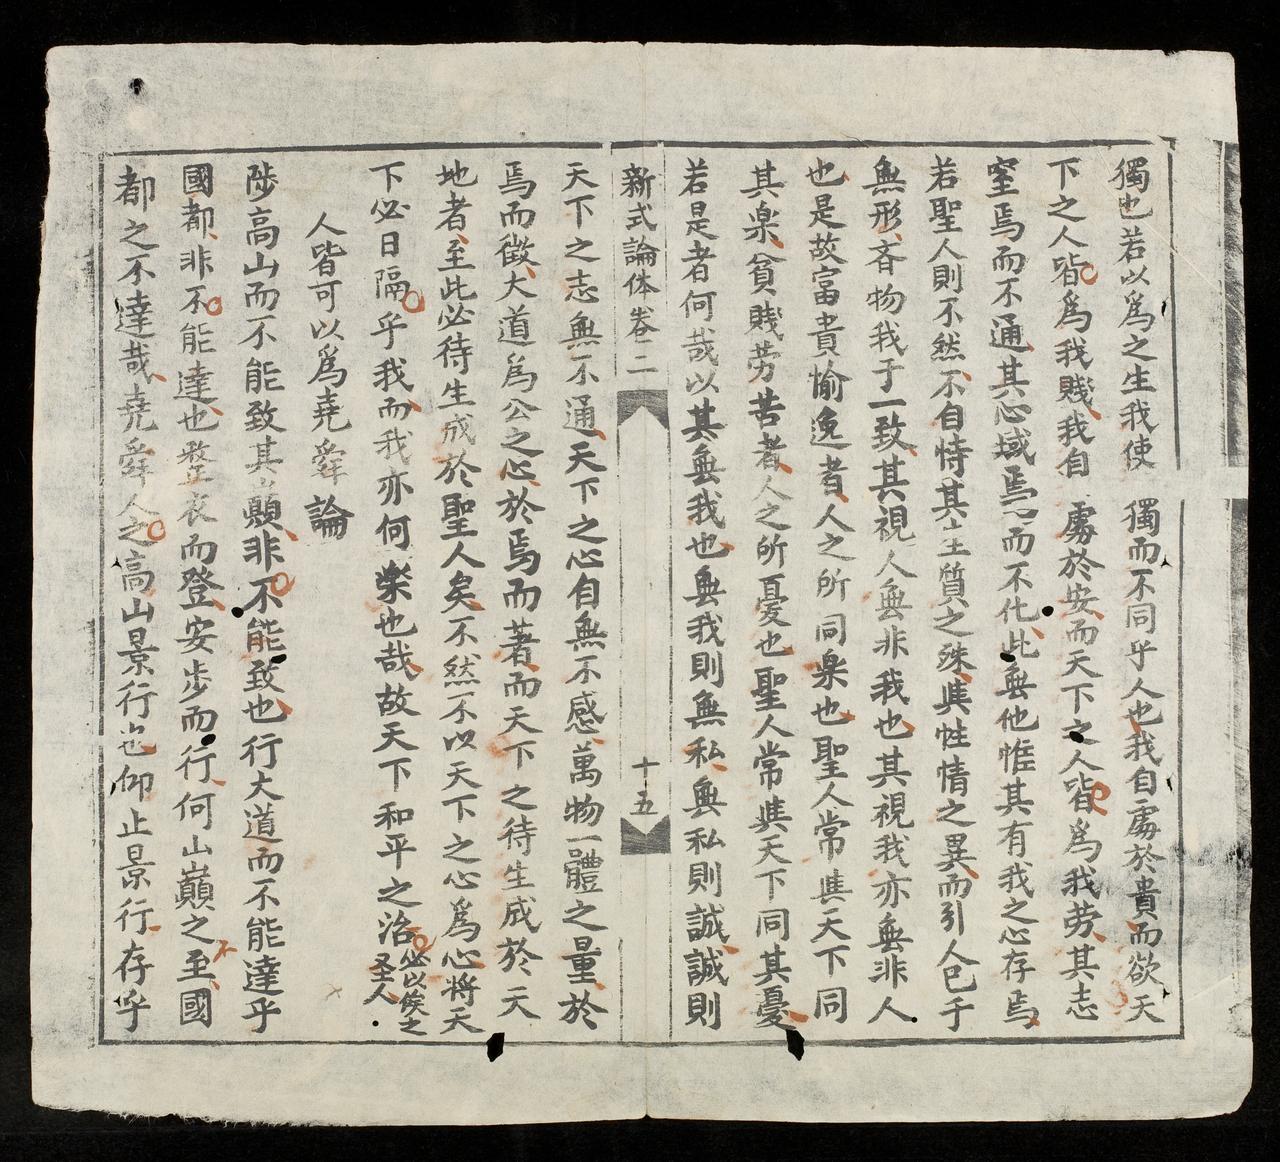 獨也若以爲之生我使獨而不同乎人也我自處於貴而欲天
下之人皆爲我賤我自處於安而天下之人皆爲我劳其志
窒焉而不通其心域焉而不化此無他惟其有我之心存焉
若聖人則不然不自恃其生質之殊與性情之異而引人已于
無形斉物我于一致其視人無非我也其視我亦無非人
也是故富貴愉逸者人之所同楽也聖人常與天下同
其楽貧賤劳苦者人之所憂也聖人常與天下同其憂
若是者何哉以其無我也無我則無私無私則誠誠則
新式論体巻二 十五
天下之志無不通天下之心自無不感萬物一體之量於
焉而徵大道爲公之心於焉而著而天下之待生成於天
地者至此必待生成於聖人矣不然不以天下之心爲心將天
下必日隔乎我而我亦何楽也哉故天下和平之治必以俟之圣人
人皆可以爲堯舜論
陟高山而不能致其顛非不能致也行大道而不能達乎
國都非不能達也整衣而登安步而行何山巔之至國
都之不達哉堯舜人之高山景行也仰止景行存乎